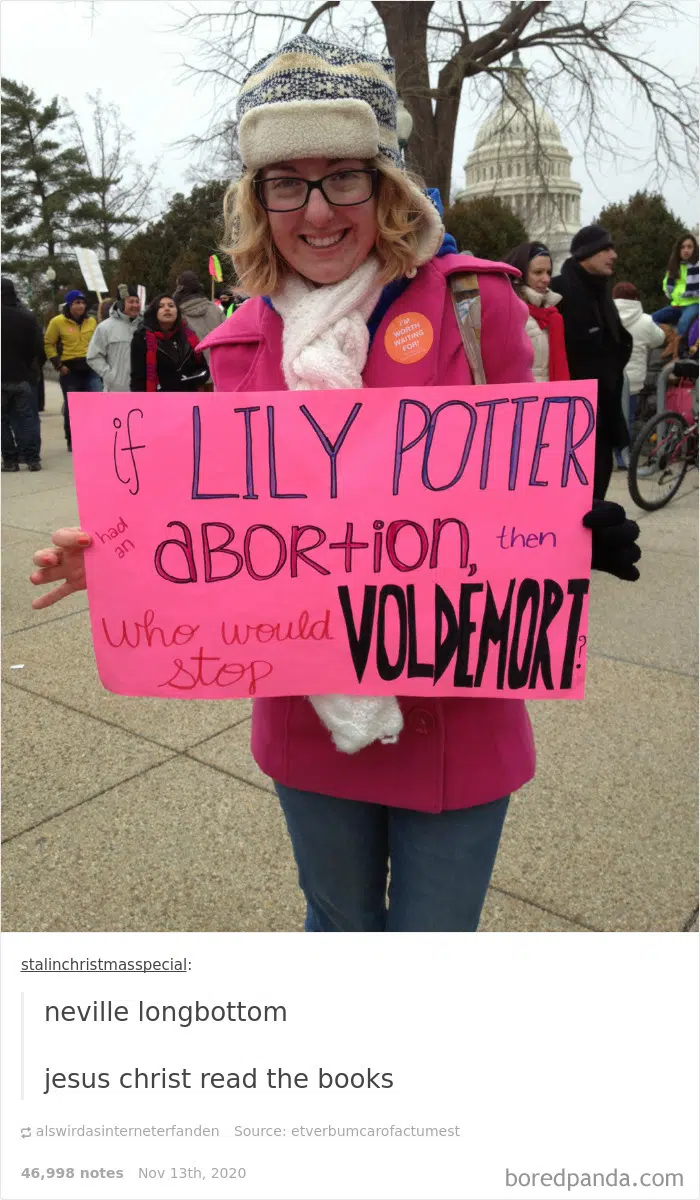 I'M
WORTH
WAITING
FOR!
if LILY POTTER
had an ABORtiON, then
who would stop VOLDEMORT?
stalinchristmasspecial:
neville longbottom
jesus christ read the books
alswirdasinterneterfanden Source: etverbumcarofactumest
46,998 notes Nov 13th, 2020
boredpanda.com